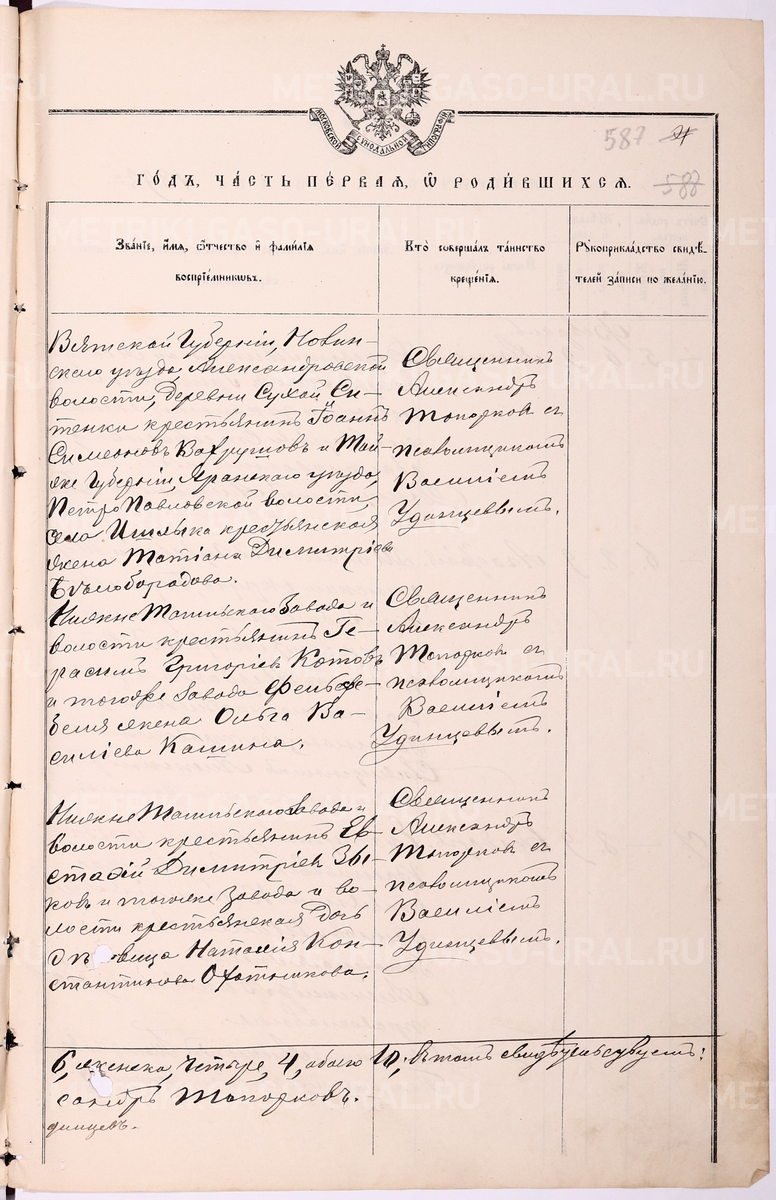 МОСКОВСКОЙ СѴНОДАЛЬНОЙ ТИПОГРАФІИ
587
588
ГО́ДЪ, ЧА́СТЬ ПЕ́РВАЯ, Ѡ҆ РОДИ́ВШИХСЯ.
Зва́нїе, и҆́мя, ѻ҆́тчество и҆ фами́лїя
воспрїе́мникѡвъ.
Кто̀ соверша́лъ та́инство
креще́нїя.
Рꙋкоприкла́дство свидѣ́-
телей за́писи по жела́нїю.
Вятской Губерніи, Нолин-
скаго уезда, Александровской
волости, Деревни Сухой Си-
тенки крестьянинъ Іоаннъ
Симеоновъ Вахрушовъ и
же Губерніи, Яранскаго уезда,
Петро Павловской волости,
села крестьянская
жена Татіана Димитріева
Бѣлобородова.
Священникъ
Александръ
Топорковъ съ
псаломщикомъ
Василіемъ
Удинцевымъ.
Нижне Тагильскаго Завода и
волости крестьянинъ Ге-
расимъ Григоріевъ Котовъ
и тогоже Завода Фельдфе-
беля жена Ольга Ва-
силіева Кашина.
Священникъ
Александръ
Топорковъ съ
псаломщикомъ
Василіемъ
Удинцевымъ.
Нижне Тагильскаго Завода и
волости крестьянинъ Ев-
стафій Димитріевъ Зы-
ковъ и тогоже Завода и во-
лости крестьянская дочь
дѣвица Наталія Кон-
стантинова Охотникова.
Священникъ
Александръ
Топорковъ съ
псаломщикомъ
Василіемъ
Удинцевымъ.
6, женска, четыре, 4, обоего 10; въ томъ свидѣтельствуетъ:
сандръ Топорковъ.
динцевъ.